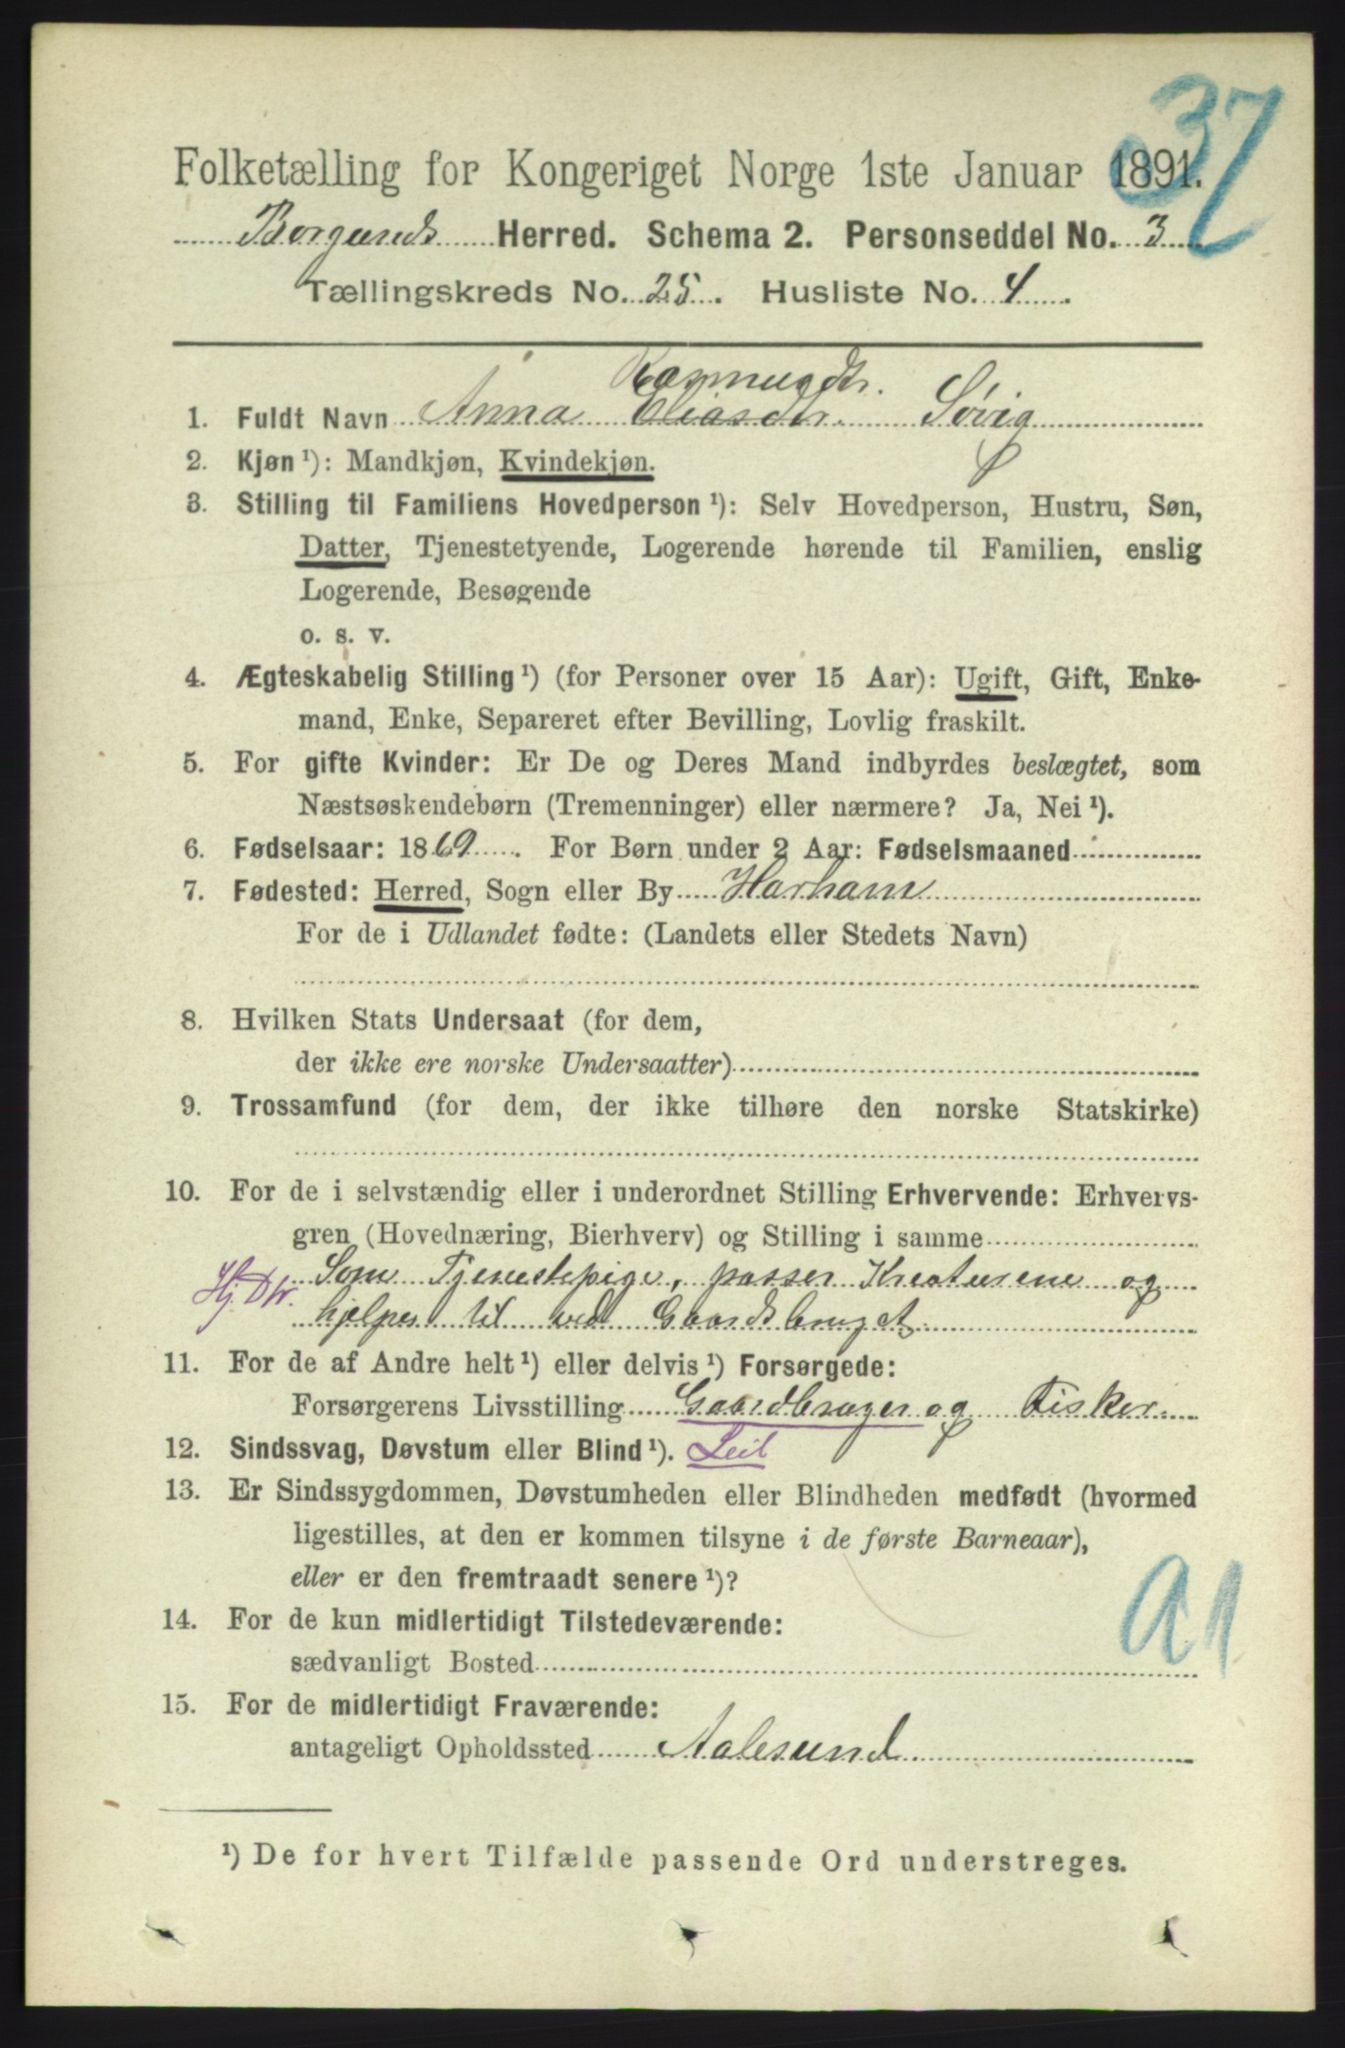 37
Folketælling for Kongeriget Norge 1ste Januar 1891.
Borgunds Herred. Schema 2. Personseddel No. 3
Tællingskreds No. 25. Husliste No. 4.
Rasmusdtr.
1. Fuldt Navn Anna Eliasdtr. Søvig
2. Kjøn ¹): Mandkjøn, Kvindekjøn.
3. Stilling til Familiens Hovedperson ¹): Selv Hovedperson, Hustru, Søn,
Datter, Tjenestetyende, Logerende hørende til Familien, enslig
Logerende, Besøgende
o. s. v.
4. Ægteskabelig Stilling ¹) (for Personer over 15 Aar): Ugift, Gift, Enke-
mand, Enke, Separeret efter Bevilling, Lovlig fraskilt.
5. For gifte Kvinder: Er De og Deres Mand indbyrdes beslægtet, som
Næstsøskendebørn (Tremenninger) eller nærmere? Ja, Nei ¹).
6. Fødselsaar: 1869. For Børn under 2 Aar: Fødselsmaaned
7. Fødested: Herred, Sogn eller By Harham
For de i Udlandet fødte: (Landets eller Stedets Navn)
8. Hvilken Stats Undersaat (for dem,
der ikke ere norske Undersaatter)
9. Trossamfund (for dem, der ikke tilhøre den norske Statskirke)
10. For de i selvstændig eller i underordnet Stilling Erhvervende: Erhvervs-
gren (Hovednæring, Bierhverv) og Stilling i samme
Som Tjenestepige, passer Kreaturene og
Hj. Dtr. hjelper til ved Gaardsbruget
11. For de af Andre helt ¹) eller delvis ¹) Forsørgede:
Forsørgerens Livsstilling Gaardbruger og Fisker
12. Sindssvag, Døvstum eller Blind ¹). Leil
13. Er Sindssygdommen, Døvstumheden eller Blindheden medfødt (hvormed
ligestilles, at den er kommen tilsyne i de første Barneaar),
eller er den fremtraadt senere ¹)?
14. For de kun midlertidigt Tilstedeværende:
sædvanligt Bosted
A1
15. For de midlertidigt Fraværende:
antageligt Opholdssted Aalesund
¹) De for hvert Tilfælde passende Ord understreges.